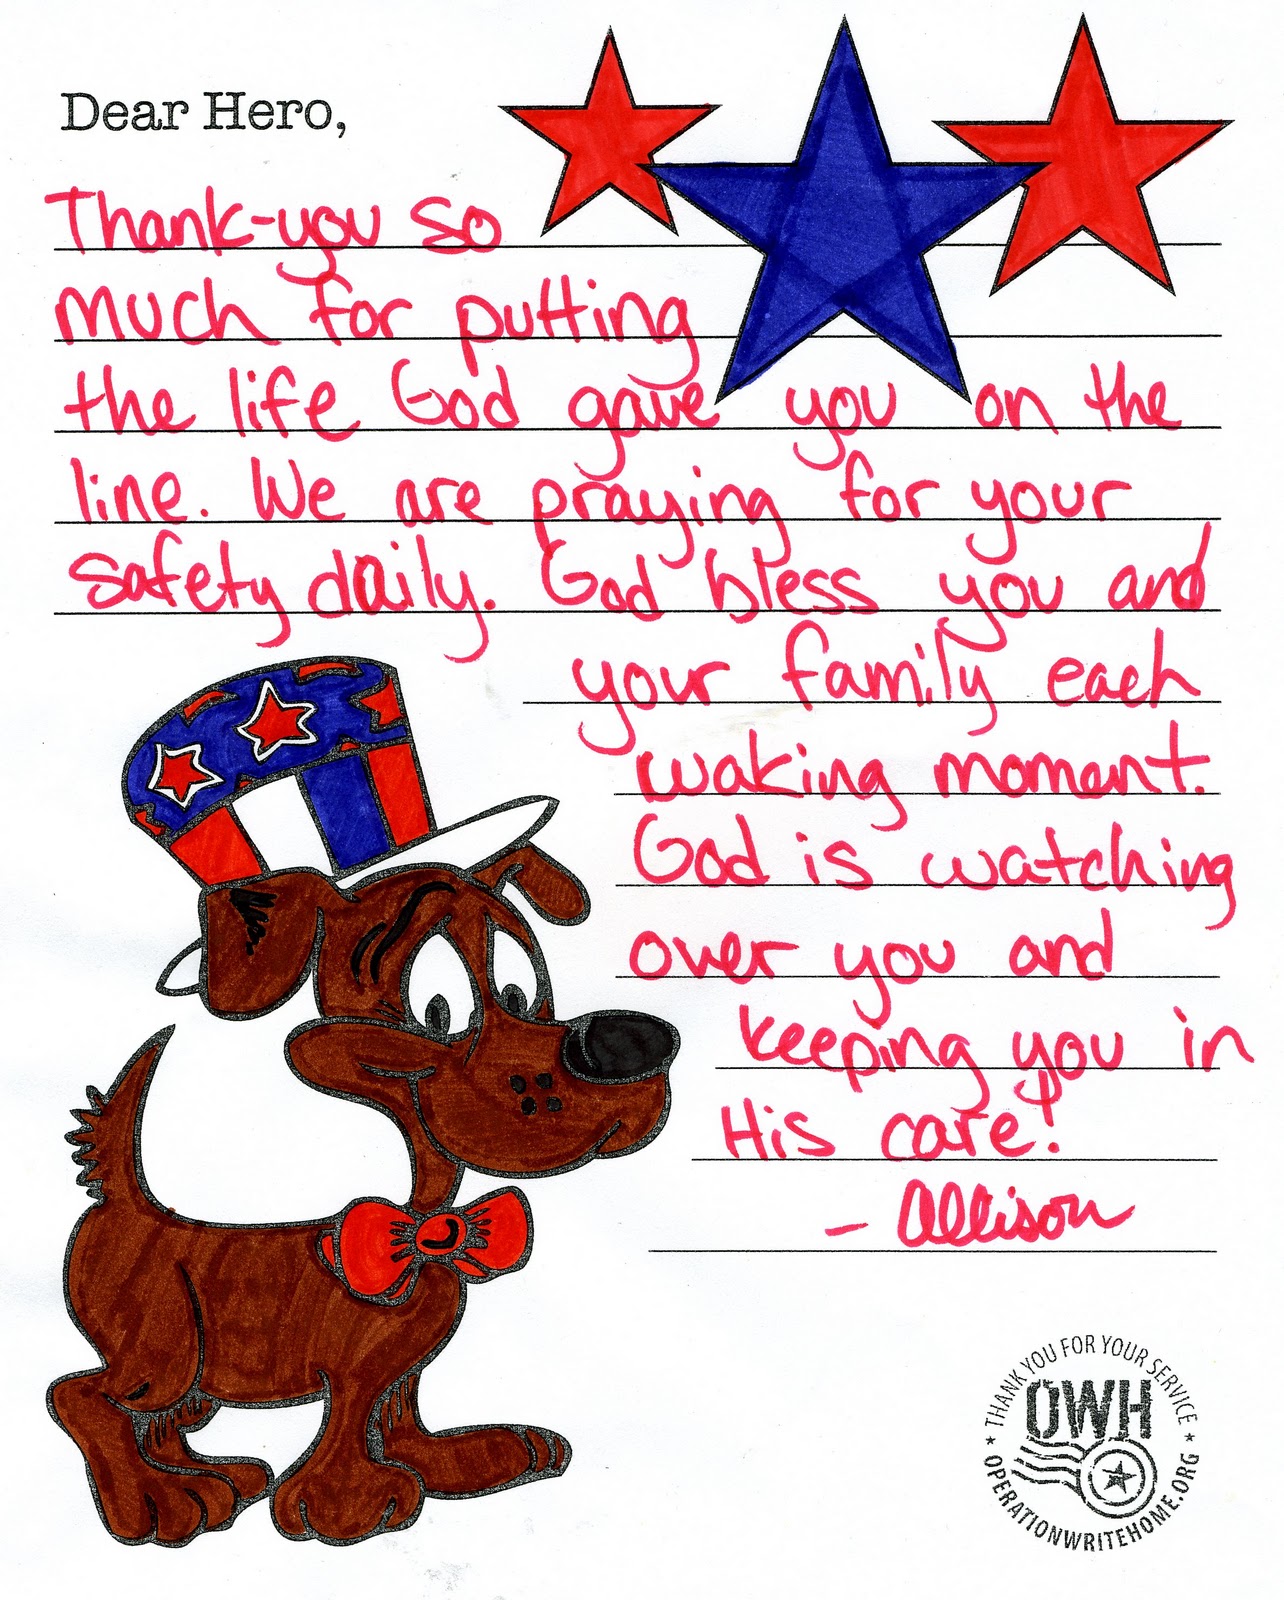 Dear Hero,
Thank-you so
much for putting
the life God gave you on the
line. We are praying for your
safety daily. God bless you and
your family each
waking moment.
God is watching
over you and
keeping you in
His care!
- Allison
THANK YOU FOR YOUR SERVICE
OWH
OPERATIONWRITEHOME.ORG